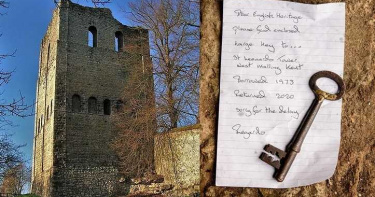 Dear English Heritage
please find enclosed
large key to...
St Leonards Tower
West Malling Kent
Borrowed 1973
Returned 2020
sorry for the delay
Regards